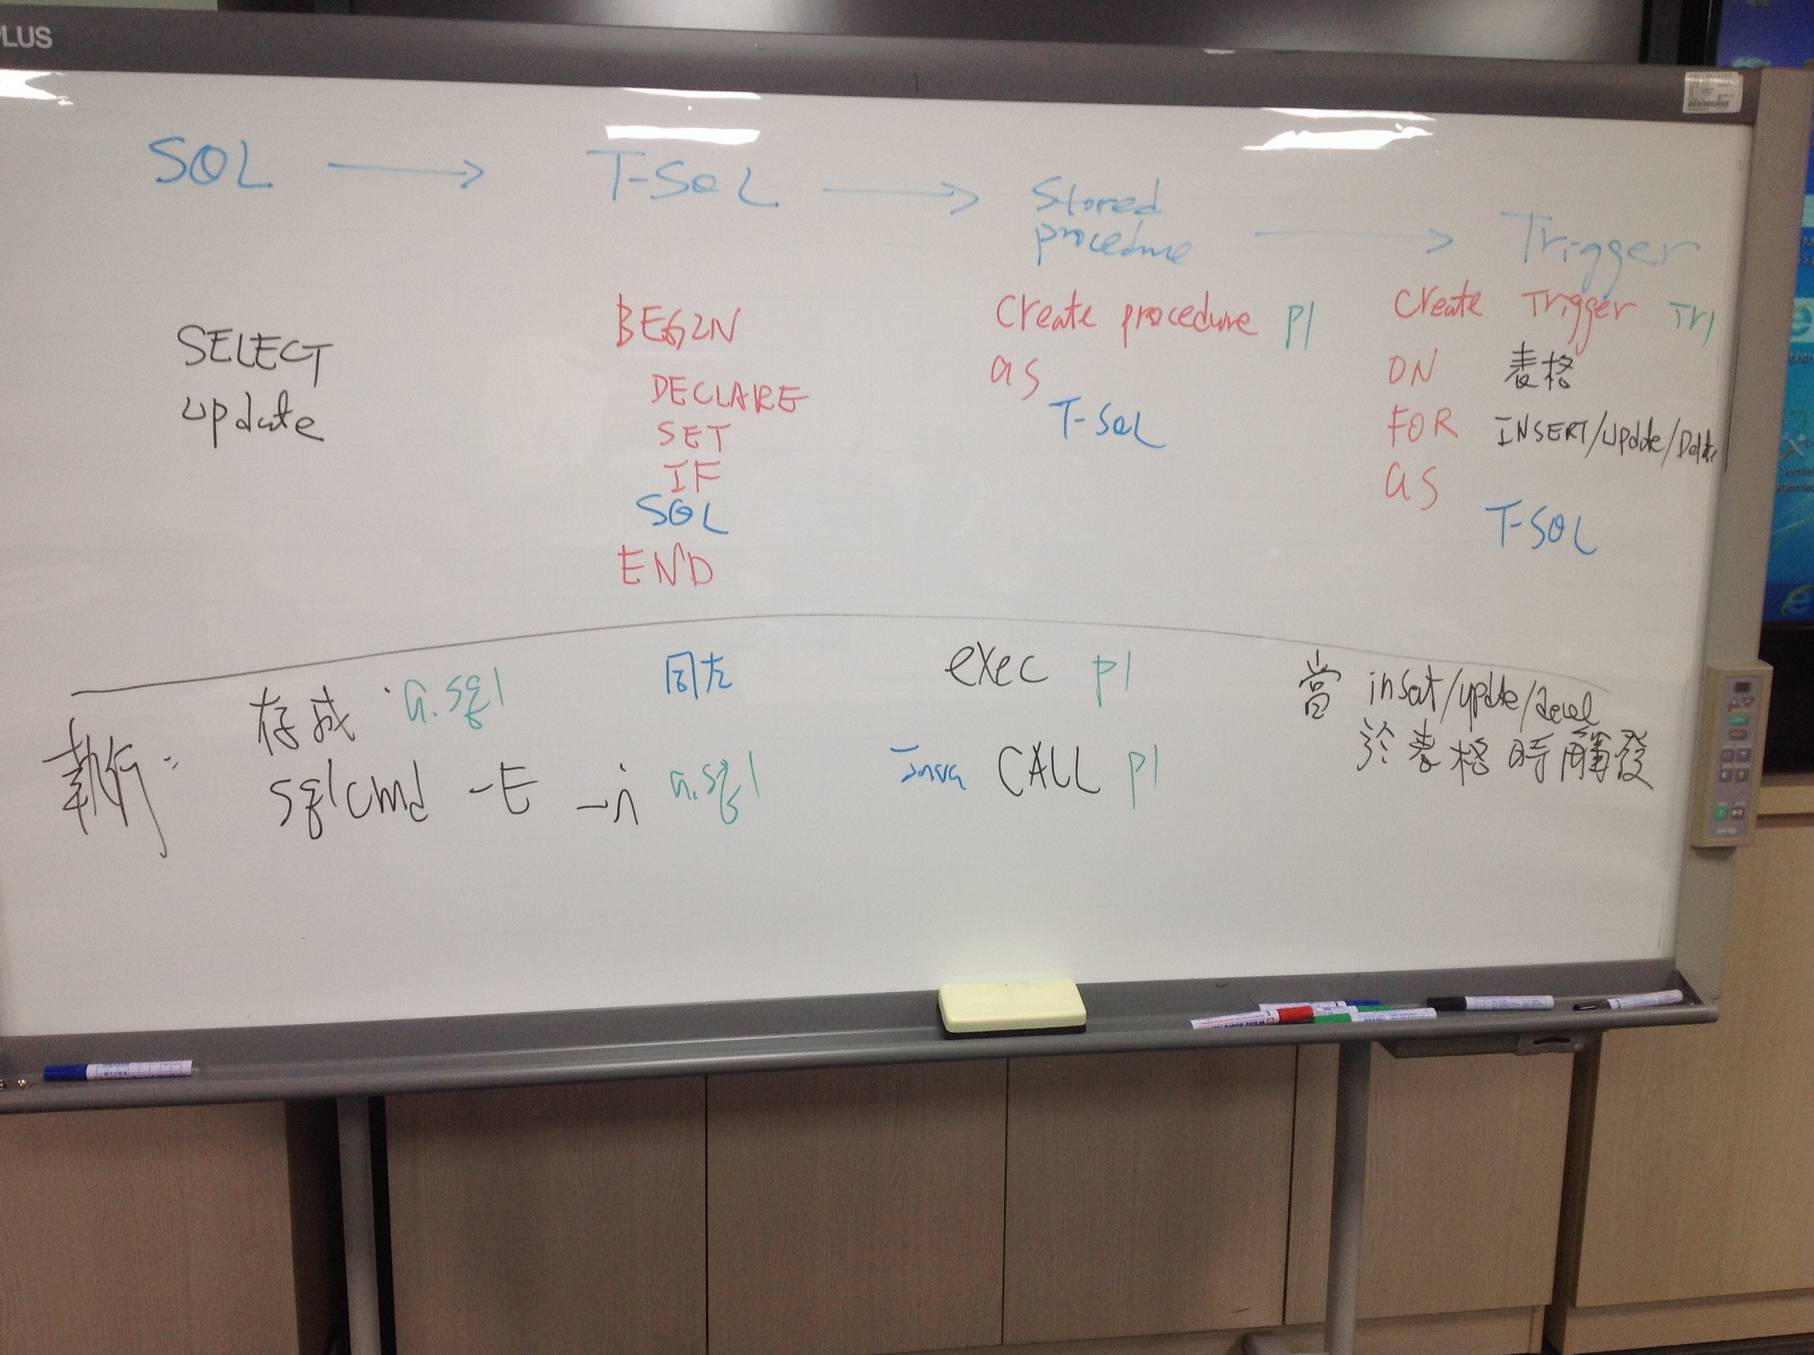 PLUS
SQL → T-SQL → Stored procedure → Trigger
SELECT
update
BEGIN
DECLARE
SET
IF
SQL
END
Create procedure p1
as
T-SQL
Create Trigger Tr1
ON 表格
FOR INSERT/Update/Delete
as
T-SQL
執行:
存成 a.sql
sqlcmd -E -i a.sql
同左
exec p1
Java CALL p1
當 insert/update/
於表格時觸發